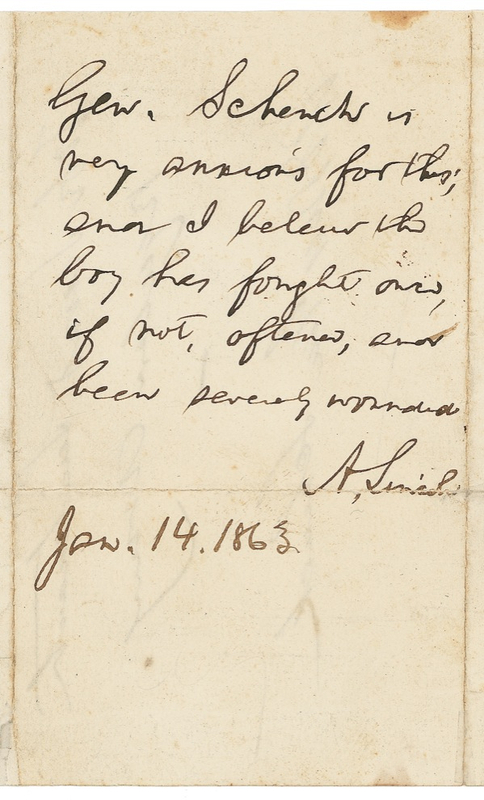 Gen. Schenck is
very anxious for this;
and I believe the
boy has fought once,
if not, oftener, and
been severely wounded
A. Lincoln
Jan. 14. 1863